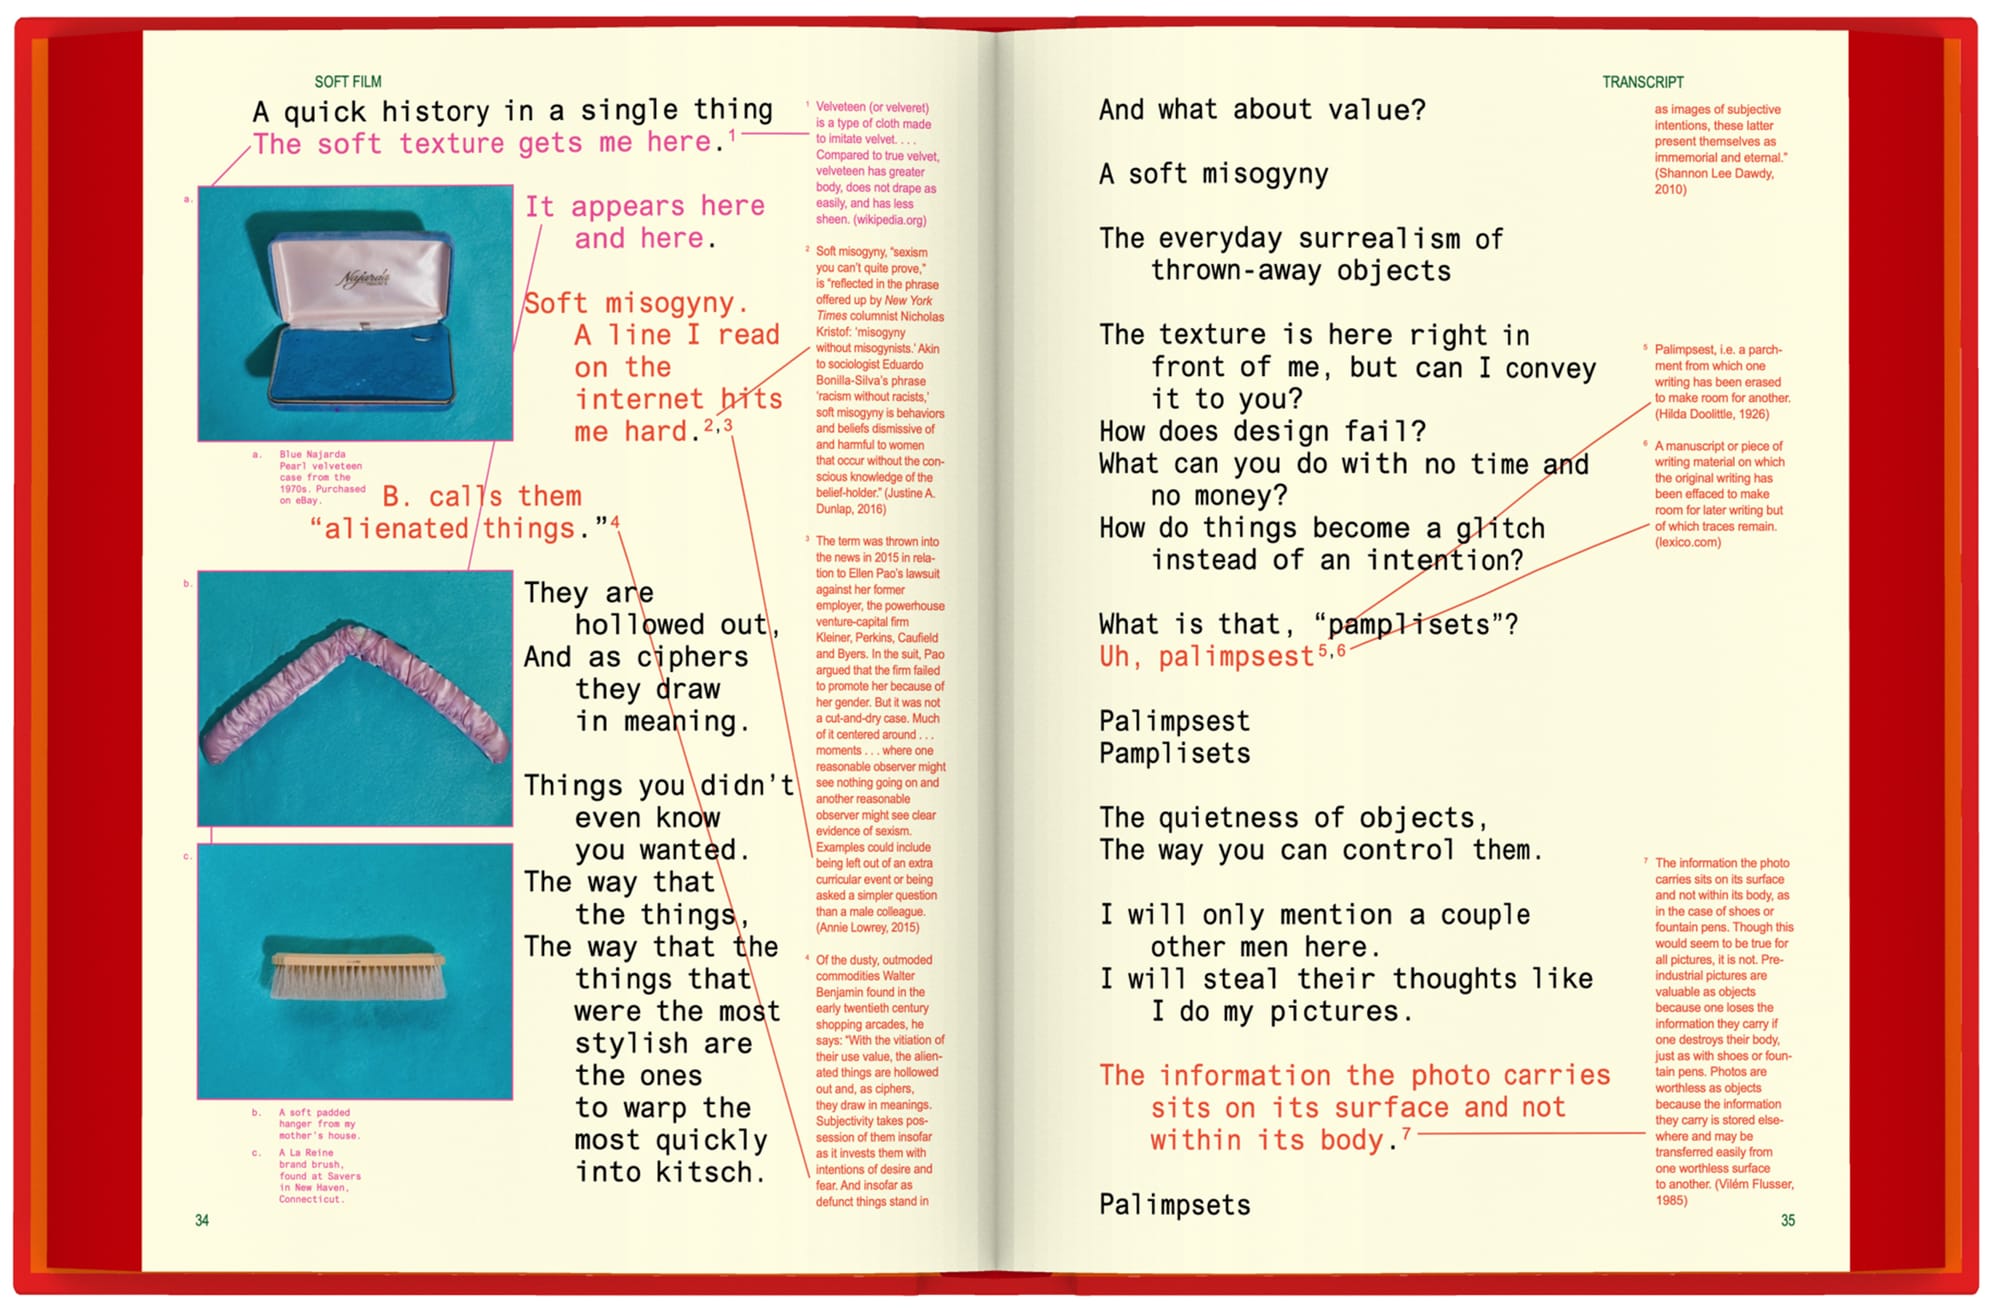 SOFT FILM
A quick history in a single thing
The soft texture gets me here.1
a.
Najarda
It appears here
and here.
Soft misogyny.
A line I read
on the
internet hits
me hard.2,3
a. Blue Najarda
Pearl velveteen
case from the
1970s. Purchased
on eBay.
B. calls them
“alienated things.”4
b.
They are
hollowed out,
And as ciphers
they draw
in meaning.
Things you didn’t
even know
you wanted.
c.
The way that
the things,
The way that the
things that
were the most
stylish are
the ones
to warp the
most quickly
into kitsch.
b. A soft padded
hanger from my
mother’s house.
c. A La Reine
brand brush,
found at Savers
in New Haven,
Connecticut.
34
1 Velveteen (or velveret)
is a type of cloth made
to imitate velvet. . . .
Compared to true velvet,
velveteen has greater
body, does not drape as
easily, and has less
sheen. (wikipedia.org)
2 Soft misogyny, “sexism
you can’t quite prove,”
is “reflected in the phrase
offered up by New York
Times columnist Nicholas
Kristof: ‘misogyny
without misogynists.’ Akin
to sociologist Eduardo
Bonilla-Silva’s phrase
‘racism without racists,’
soft misogyny is behaviors
and beliefs dismissive of
and harmful to women
that occur without the con-
scious knowledge of the
belief-holder.” (Justine A.
Dunlap, 2016)
3 The term was thrown into
the news in 2015 in rela-
tion to Ellen Pao’s lawsuit
against her former
employer, the powerhouse
venture-capital firm
Kleiner, Perkins, Caufield
and Byers. In the suit, Pao
argued that the firm failed
to promote her because of
her gender. But it was not
a cut-and-dry case. Much
of it centered around . . .
moments . . . where one
reasonable observer might
see nothing going on and
another reasonable
observer might see clear
evidence of sexism.
Examples could include
being left out of an extra
curricular event or being
asked a simpler question
than a male colleague.
(Annie Lowrey, 2015)
4 Of the dusty, outmoded
commodities Walter
Benjamin found in the
early twentieth century
shopping arcades, he
says: “With the vitiation of
their use value, the alien-
ated things are hollowed
out and, as ciphers,
they draw in meanings.
Subjectivity takes pos-
session of them insofar
as it invests them with
intentions of desire and
fear. And insofar as
defunct things stand in
TRANSCRIPT
And what about value?
A soft misogyny
The everyday surrealism of
thrown-away objects
The texture is here right in
front of me, but can I convey
it to you?
How does design fail?
What can you do with no time and
no money?
How do things become a glitch
instead of an intention?
What is that, “pamplisets”?
Uh, palimpsest5,6
Palimpsest
Pamplisets
The quietness of objects,
The way you can control them.
I will only mention a couple
other men here.
I will steal their thoughts like
I do my pictures.
The information the photo carries
sits on its surface and not
within its body.7
Palimpsets
as images of subjective
intentions, these latter
present themselves as
immemorial and eternal.”
(Shannon Lee Dawdy,
2010)
5 Palimpsest, i.e. a parch-
ment from which one
writing has been erased
to make room for another.
(Hilda Doolittle, 1926)
6 A manuscript or piece of
writing material on which
the original writing has
been effaced to make
room for later writing but
of which traces remain.
(lexico.com)
7 The information the photo
carries sits on its surface
and not within its body, as
in the case of shoes or
fountain pens. Though this
would seem to be true for
all pictures, it is not. Pre-
industrial pictures are
valuable as objects
because one loses the
information they carry if
one destroys their body,
just as with shoes or foun-
tain pens. Photos are
worthless as objects
because the information
they carry is stored else-
where and may be
transferred easily from
one worthless surface
to another. (Vilém Flusser,
1985)
35